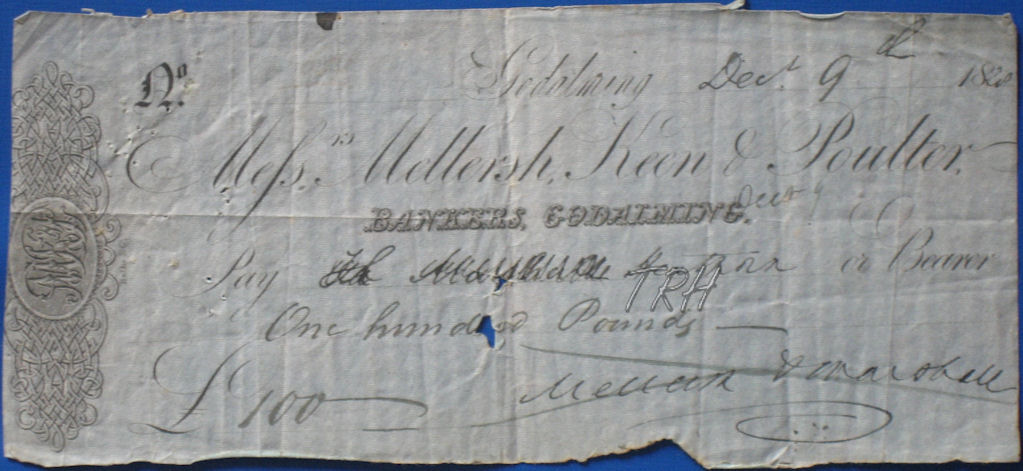 Nº.
Godalming Decr. 9th 18
Messrs. Mellersh, Keen & Poulter.
BANKERS, GODALMING.
Decr 9
Pay or Bearer
TRH
One hundred Pounds
£ 100